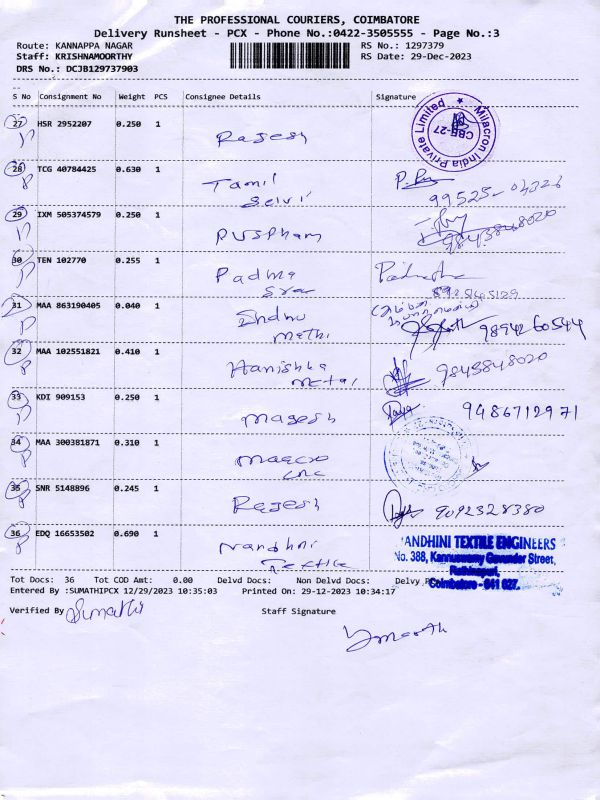 THE PROFESSIONAL COURIERS, COIMBATORE
Delivery Runsheet - PCX - Phone No.:0422-3505555 - Page No.:3
Route: KANNAPPA NAGAR RS No.: 1297379
Staff: KRISHNAMOORTHY RS Date: 29-Dec-2023
DRS No.: DCJB129737903
S No Consignment No Weight PCS Consignee Details Signature
27 HSR 2952207 0.250 1 Rajesh
Milacron India Private Limited
CBE-27
28 TCG 40784425 0.630 1 Tamil
Selvi
99525-04326
29 IXM 505374579 0.250 1 Puspham 9843848020
30 TEN 102770 0.255 1 Padma
8925165129
31 MAA 863190405 0.040 1 Indhu
Methi
9894260544
32 MAA 102551821 0.410 1 Hanishka
Metal
9843848020
33 KDI 909153 0.250 1 Magesh 9486712971
34 MAA 300381871 0.310 1 Macro
CNC
35 SNR 5148896 0.245 1 Rajesh 9092328380
36 EDQ 16653502 0.690 1 Nandhni
Textile
ANDHINI TEXTILE ENGINEERS
No. 388, Kannuswamy Gounder Street,
Rathinapuri,
Coimbatore - 641 027.
Tot Docs: 36 Tot COD Amt: 0.00 Delvd Docs: Non Delvd Docs: Delvy
Entered By :SUMATHIPCX 12/29/2023 10:35:03 Printed On: 29-12-2023 10:34:17
Verified By Sumathi Staff Signature